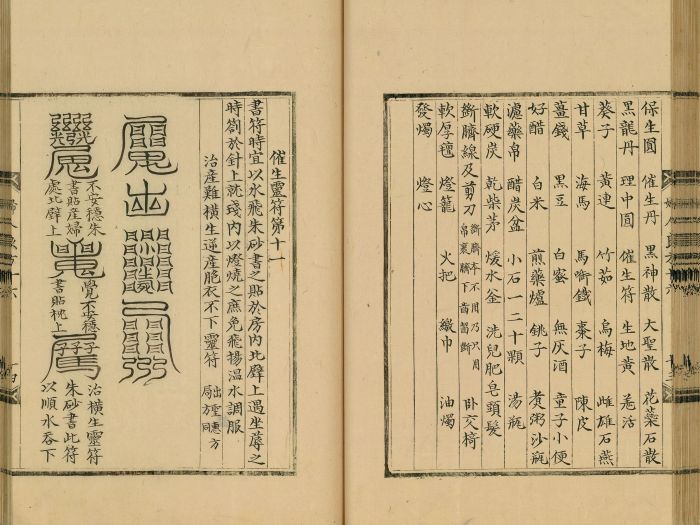 保生圓　催生丹　黑神散　大聖散　花蘂石散
黑龍丹　理中圓　催生符　生地黃　羗活
葵子　黃連　竹茹　烏梅　雌雄石燕
甘草　海馬　馬啣鐵　棗子　陳皮
薑錢　黑豆　白蜜　無灰酒　童子小便
好醋　白米　煎藥爐　銚子　煑粥沙瓶
濾藥帛　醋炭盆　小石一二十顆　湯瓶
軟硬炭　乾柴茅　煖水釜　洗兒肥皂頭髮
斷臍線及剪刀　卧交椅
軟厚氊　燈籠　火把　繳巾　油燭
發燭　燈心
催生靈符第十一
書符時宜以水飛朱砂書之貼於房內北壁上遇坐蓐之
時劄於針上就盞內以燈燒之庶免飛揚溫水調服
治產難橫生逆產胞衣不下靈符
出聖惠方
局方同
不安穩朱
書貼産婦
處北壁上
覺不安穩
書貼枕上
治橫生靈符
朱砂書此符
以順水吞下